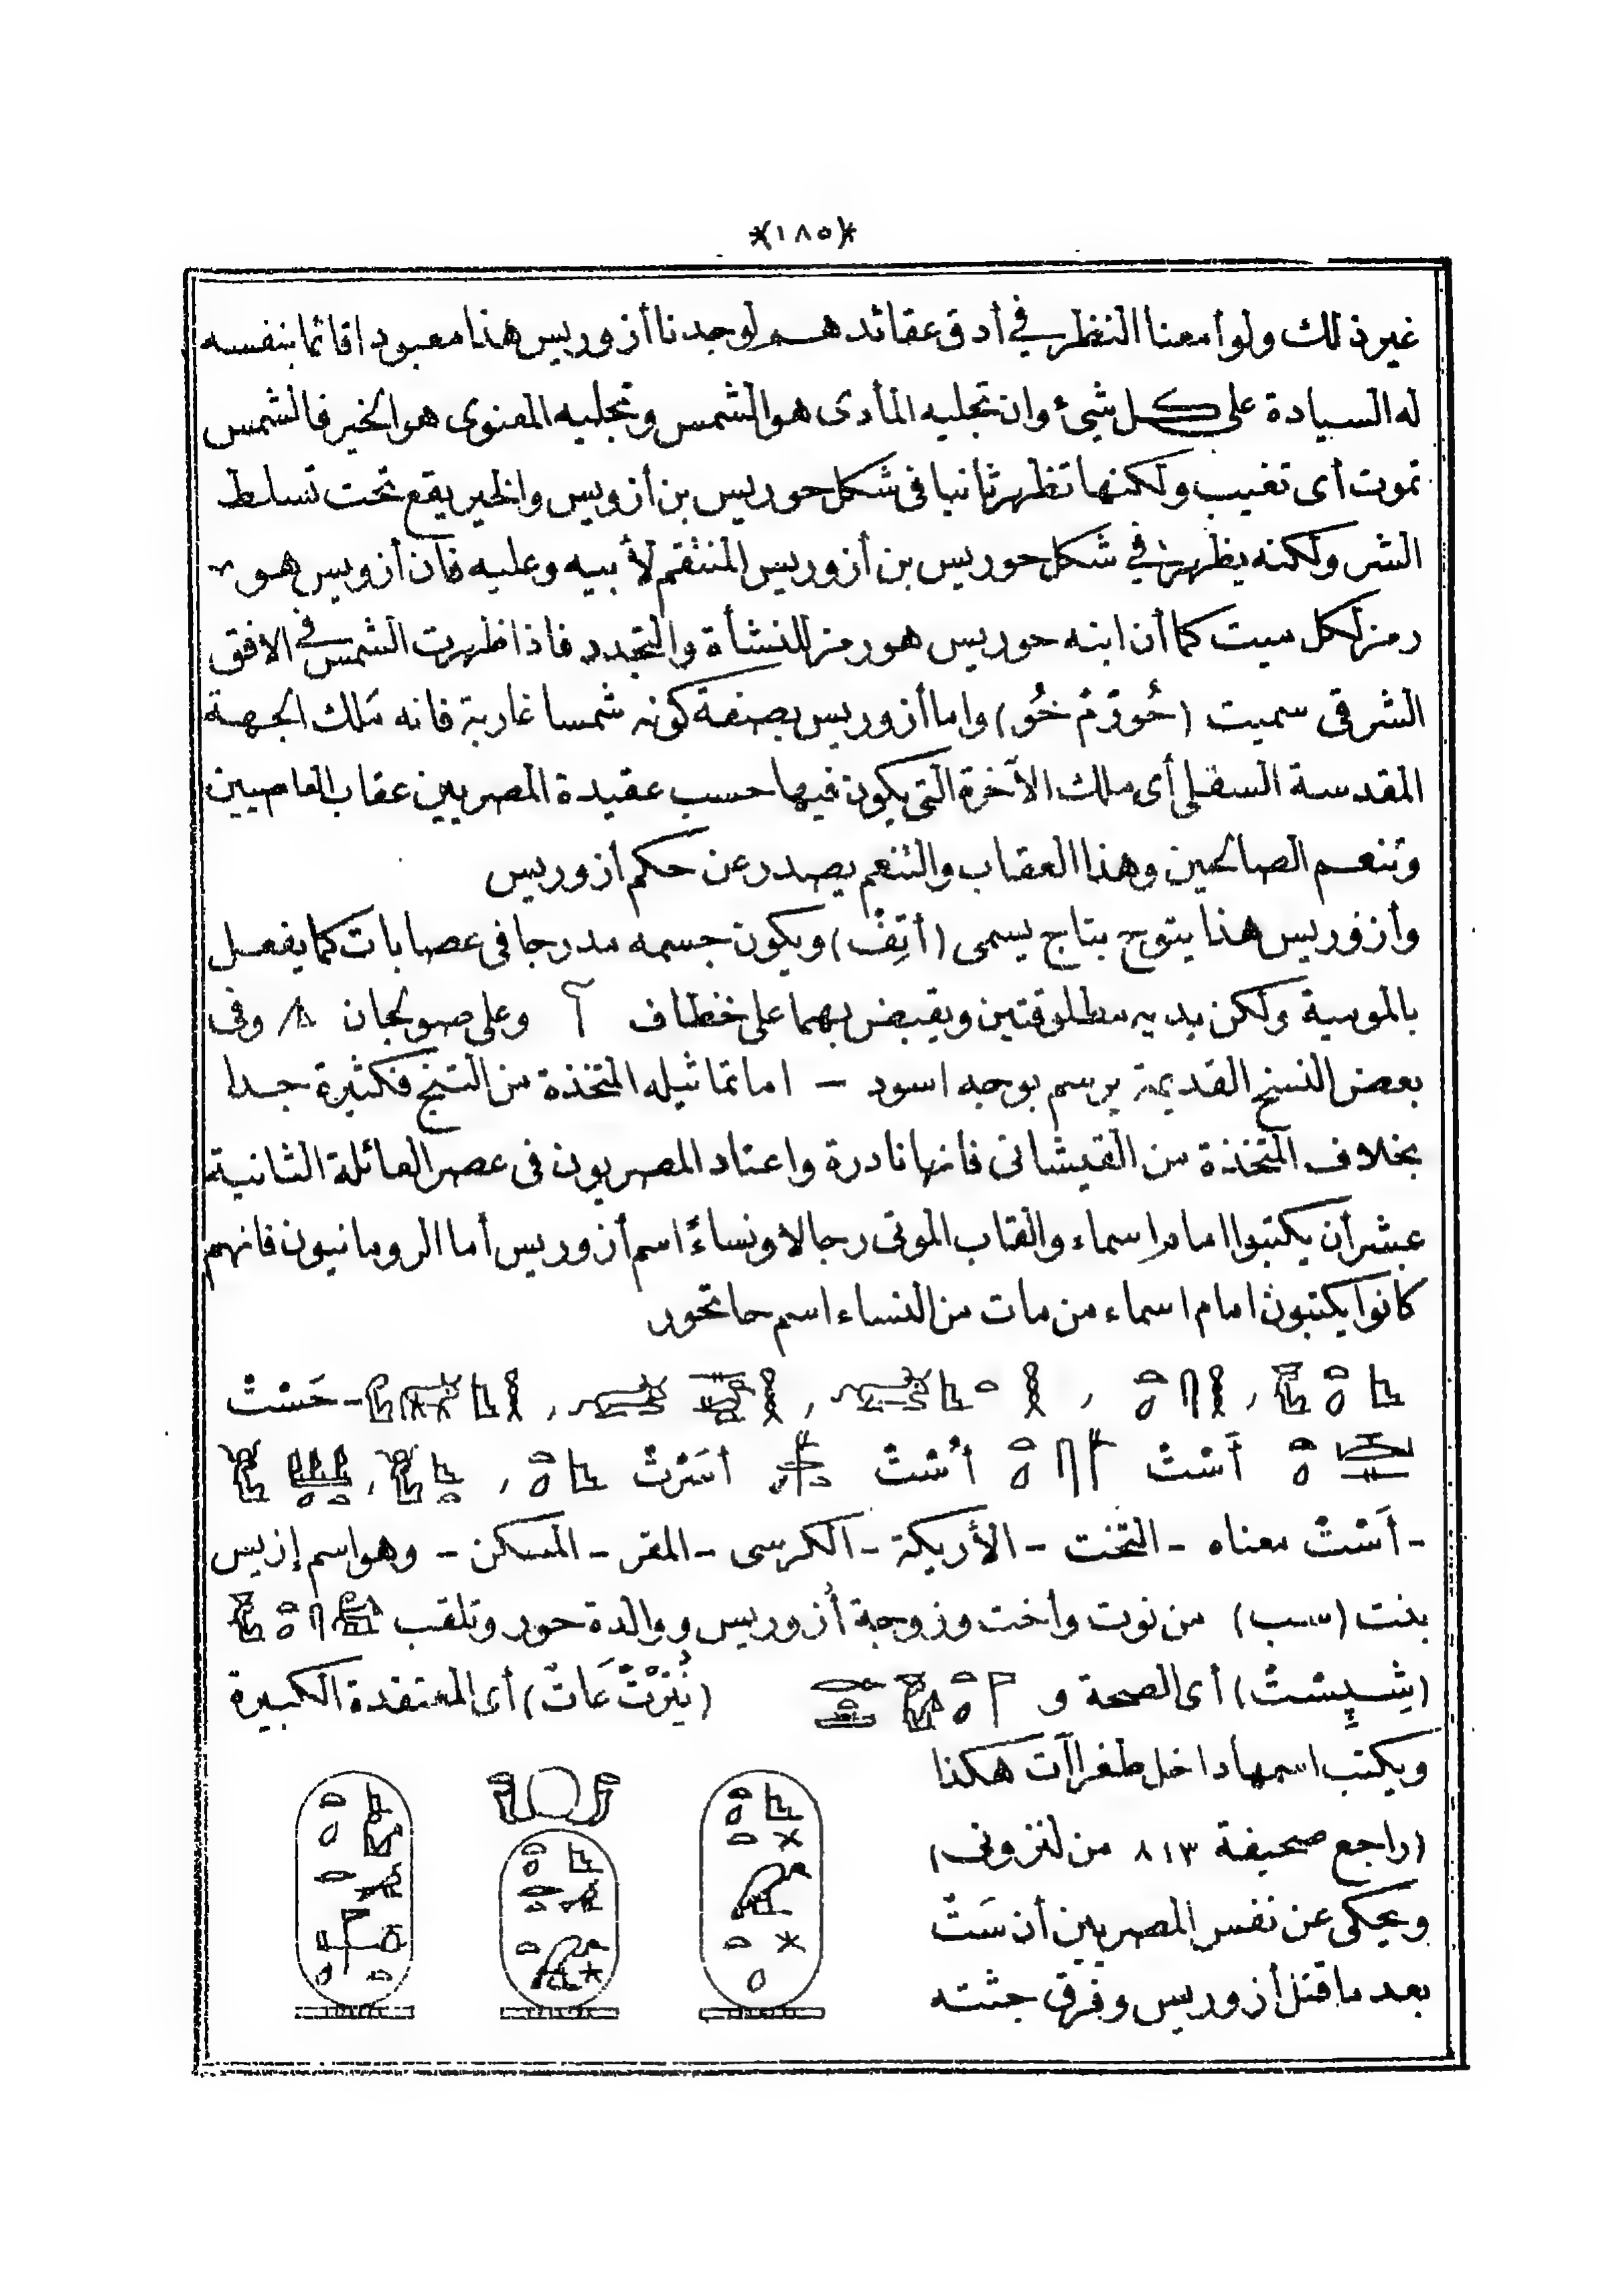 *(١٨٥)*
غير ذلك ولو أمعنا النظر في أدق عقائدهم لوجدنا أزوريس هذا معبودا قائما بنفسه
له السيادة على كل شيئ وان تجليه المأدى هو الشمس وتجليه المعنوى هو الخير فالشمس
تموت أى تغيب ولكنها تظهر ثانيا فى شكل حوريس بن أزويس والخير يقع تحت تسلط
الشر ولكنه يظهر في شكل حوريس بن أزوريس المنتقم لأبيه وعليه فان أزويس هو
رمز لكل ميت كما أن ابنه حوريس هو رمز للنشأة والتجدد فاذا ظهرت الشمس في الافق
الشرقى سميت (حُورَمْ خُو) واما أزوريس بصفة كونه شمسا غاربة فانه ملك الجهة
المقدسة السفلى أى ملك الآخرة التى يكون فيها حسب عقيدة المصريين عقاب العاصيين
وتنعم الصالحين وهذا العقاب والتنعم يصدر عن حكم أزوريس
وأزوريس هذا يتوج بتاج يسمى (أتِفْ) ويكون جسمه مدرجا فى عصابات كما يفعل
بالمومية ولكن يديه مطلوقتين ويقبض بهما على خطاف وعلى صولجان وفى
بعض النسخ القديمة يرسم بوجه اسود – اما تماثيله المتخذة من التنج فكثيرة جدا
بخلاف المتخذة من القيشانى فانها نادرة واعتاد المصريون فى عصر العائلة الثانية
عشر أن يكتبوا امام اسماء والقاب الموتى رجالا ونساءً اسم أزوريس أما الرومانيون فانهم
كانوا يكتبون امام اسماء من مات من النساء اسم حاتحور
- حَسْتْ
أسْتْ أسْتْ أسَرْتْ
- أَسْتْ معناه - التخت - الأريكة - الكرسى - المقر - المسكن - وهو اسم إزيس
بنت (سب) من نوت واخت وزوجة أزوريس ووالدة حور وتلقب
أى الصحة و (نُتِرْتْ عَاتْ) أى المعتقدة الكبيرة
ويكتب اسمها داخل طغراآت هكذا
(راجع صحيفة ٨١٣ من لنزونى)
ويحكى عن نفس المصريين أن سَتْ
بعد ما قتل أزوريس وفرق جثته